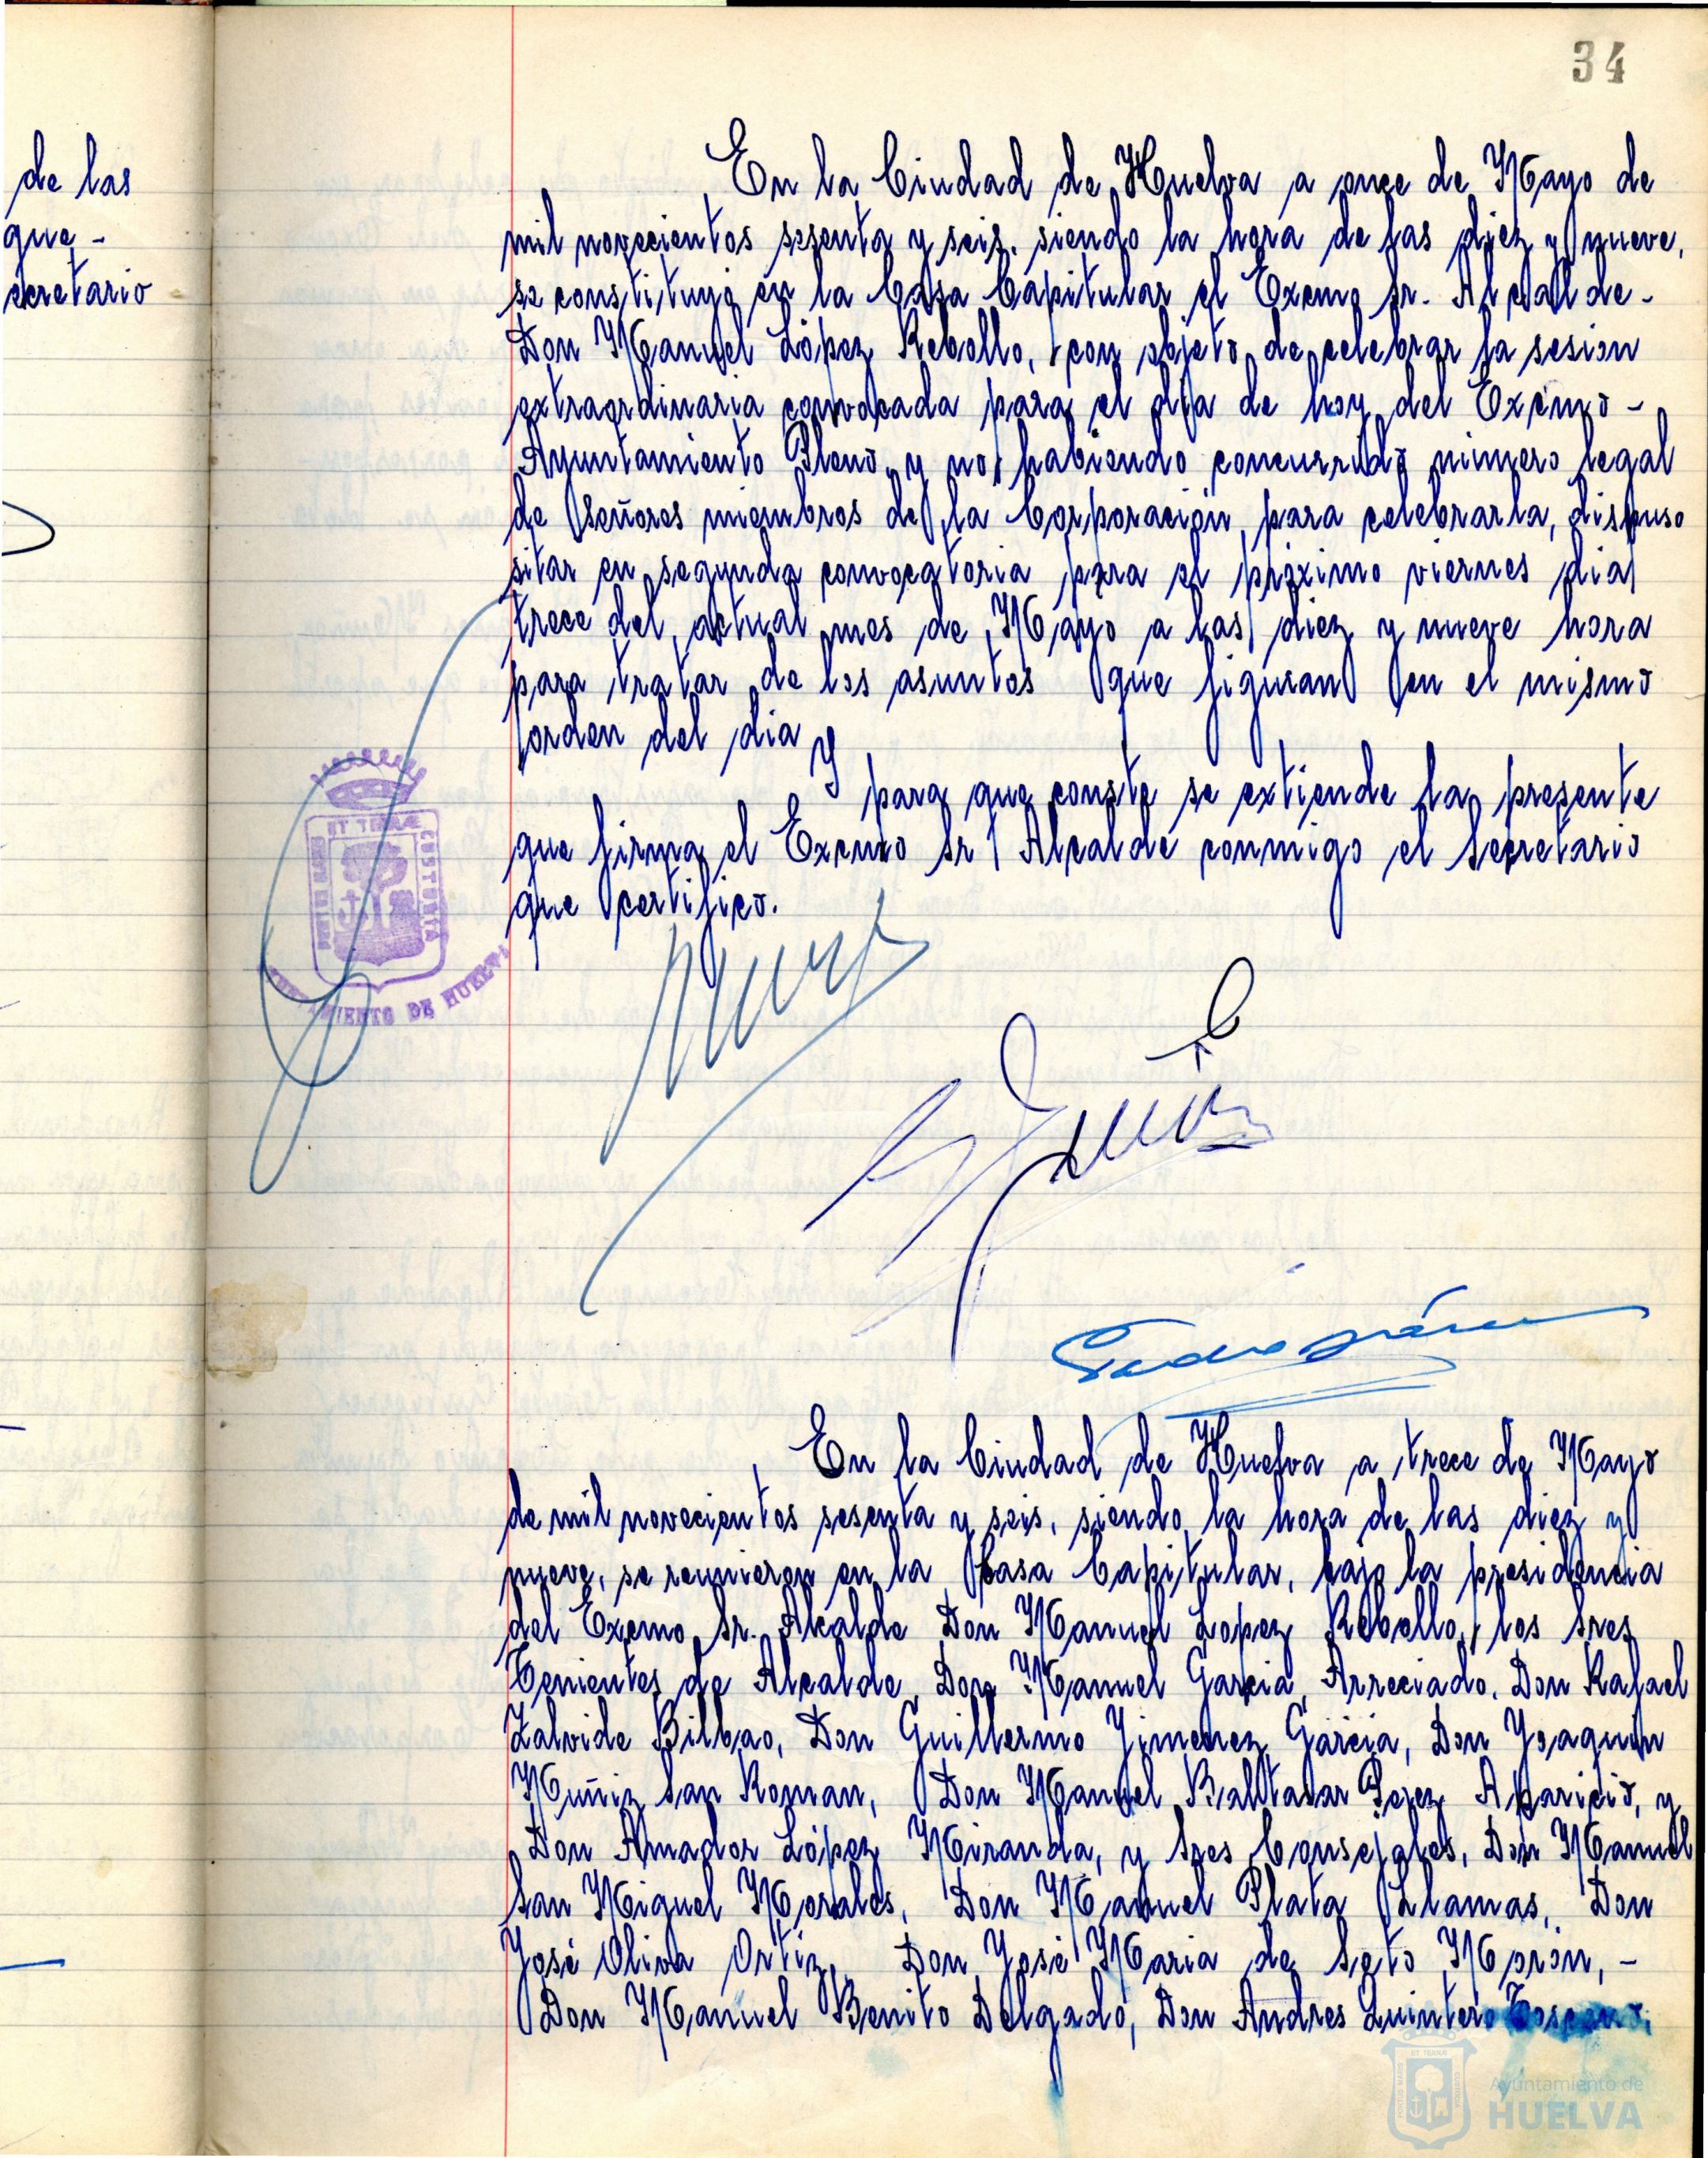 34
de las
que -
secretario
En la Ciudad de Huelva a once de Mayo de
mil novecientos sesenta y seis. siendo la hora de las diez y nueve,
se constituyó en la Casa Capitular el Excmo Sr. Alcalde -
Don Manuel López Rebollo, con objeto de celebrar la sesión
extraordinaria convocada para el dia de hoy del Excmo -
Ayuntamiento Pleno y no habiendo concurrido número legal
de Señores miembros de la Corporación para celebrarla, dispuso
sitar en segunda convocatoria para el próximo viernes dia
trece del actual mes de Mayo a las diez y nueve hora
para tratar de los asuntos que figuran en el mismo
orden del dia
Y para que conste se extiende la presente
que firma el Excmo Sr Alcalde conmigo el Secretario
que certifico.
ET TERRAE
PORTUS MARIS
CUSTODIA
AYUNTAMIENTO DE HUELVA
En la Ciudad de Huelva a trece de Mayo
de mil novecientos sesenta y seis, siendo la hora de las diez y
nueve, se reunieron en la Casa Capitular, bajo la presidencia
del Excmo Sr. Alcalde Don Manuel Lopez Rebollo, los Sres
Tenientes de Alcalde Don Manuel Garcia Arreciado, Don Rafael
Zalvide Bilbao, Don Guillermo Jimenez Garcia, Don Joaquin
Muñiz San Roman, Don Manuel Baltasar Perez Aparicio, y
Don Amador López Miranda, y Sres Consejales, Don Manuel
San Miguel Morales, Don Manuel Plata Llamas, Don
José Oliva Ortiz, Don José Maria de Soto Morón, -
Don Manuel Benito Delgado, Don Andres Quintero Toscano,
Ayuntamiento de
HUELVA